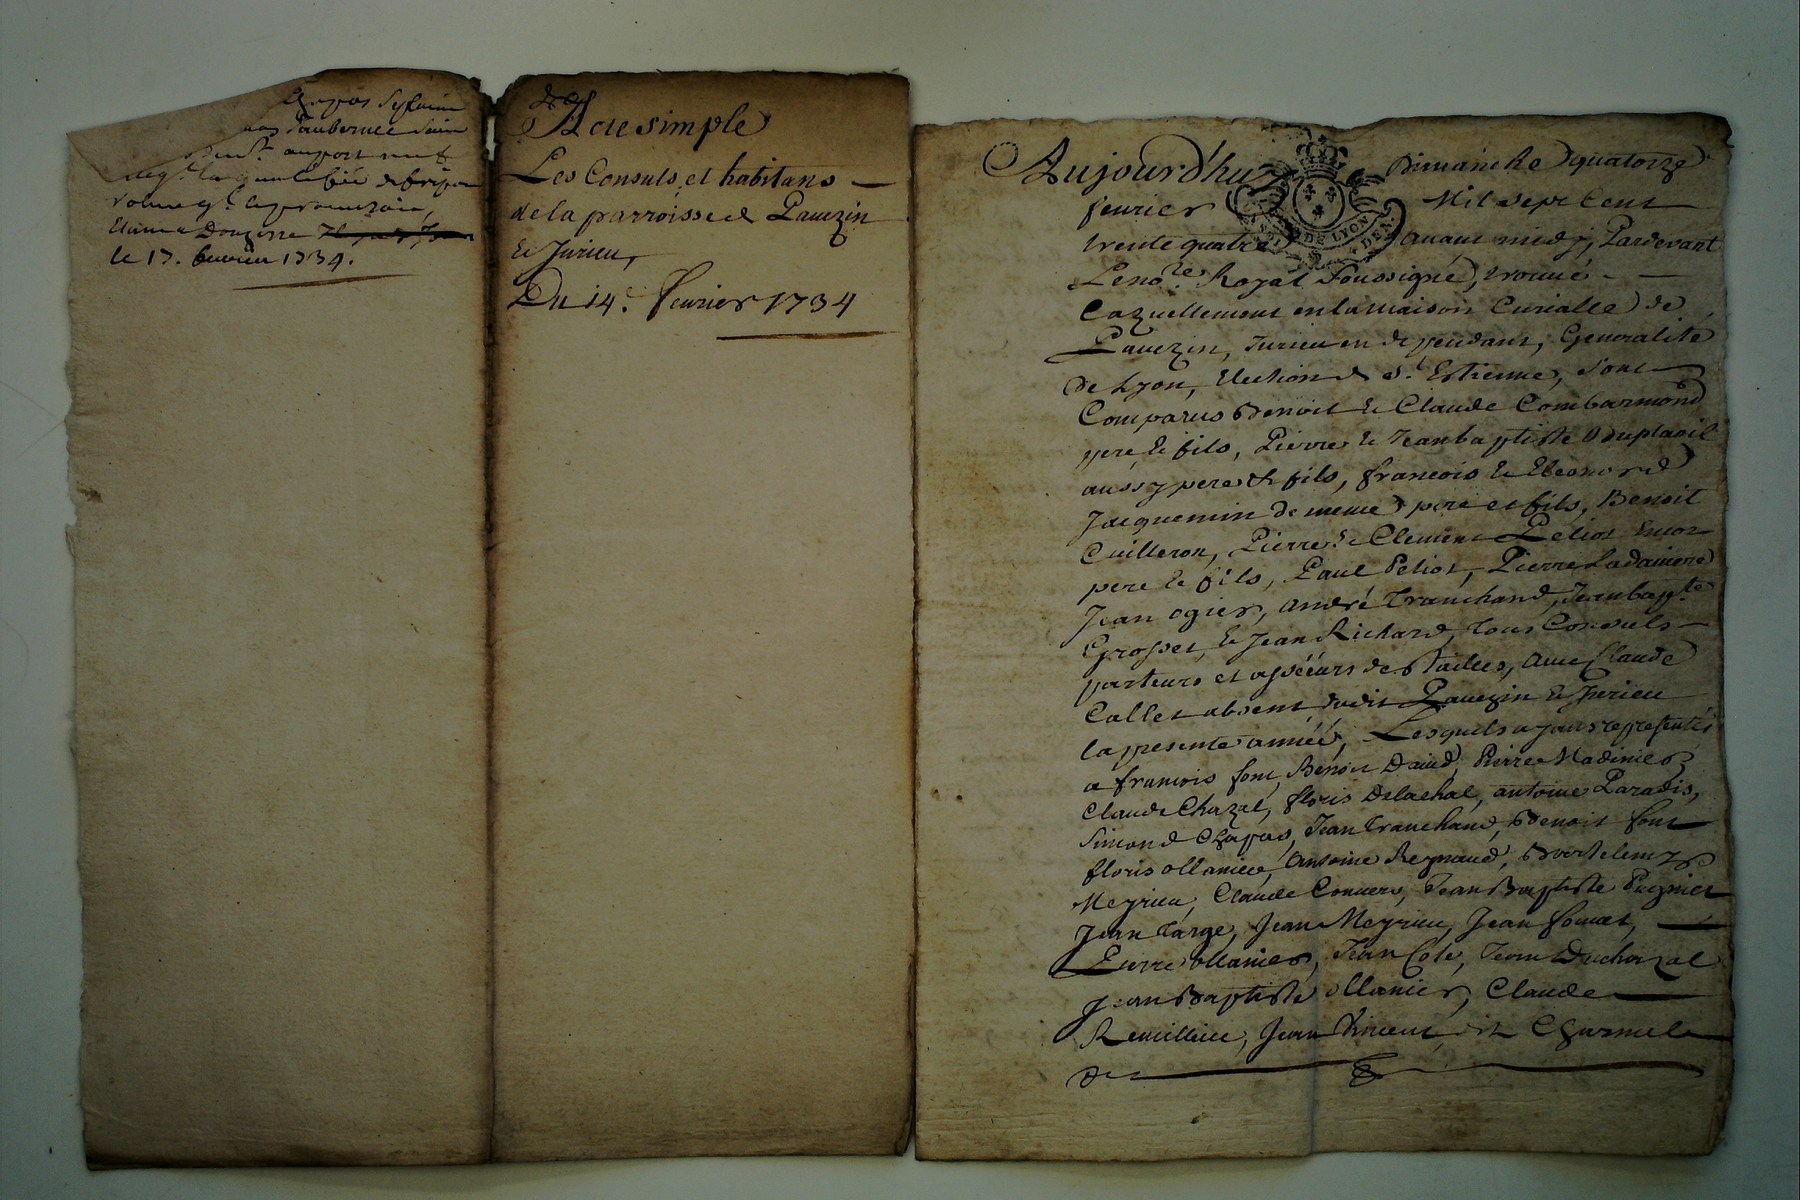 le 17. fevrier 1734.
Acte simple
Les Consuls et habitans
de la parroisse de Pavezin
et Jurieu,
Du 14.e fevrier 1734
Aujourd'huy Dimanche quatorze
fevrier Mil sept Cent
trente quatre avant midy, Pardevant
Le no.re Royal Soussigné, trouvé
Cazuellement en la maison Curialle de
Pavezin, Jurieu en dependant, Generalité
de Lyon, Election de St. Estienne, sont
Comparus Benoit et Claude Combarmond
pere et fils, Pierre et Jean baptiste Duplanil
aussy pere et fils, françois et Eleonord
Jacquemin de meme pere et fils, Benoit
Cuilleron, Pierre et Clement Peliot encor
pere et fils, Paul Peliot, Pierre
Jean ogier, André Tranchand, Jean bapt.te
Grosset, et Jean Richard, tous Consuls
parteurs et asséeurs des tailles, avec Claude
Callet absent, dudit Pavezin et Jurieu
la presente année, Lesquels ayans representés
a françois font, Benoit David, Pierre Madinier,
Claude Chazal, floris Delachal, antoine Paradis,
Simond Chapas, Jean Tranchand, Benoit font
floris ollanier, Antoine Reynaud, Bartelemy
Meyrieu, Claude Convers, Jean Baptiste Pugniet
Jean Targe, Jean Meyrieu, Jean fouvet,
Pierre ollanier, Jean Cote, Jean Duchazal
Jean Baptiste ollanier, Claude
Remillieu, Jean Vincent, dit Charmel
de
DE LYON